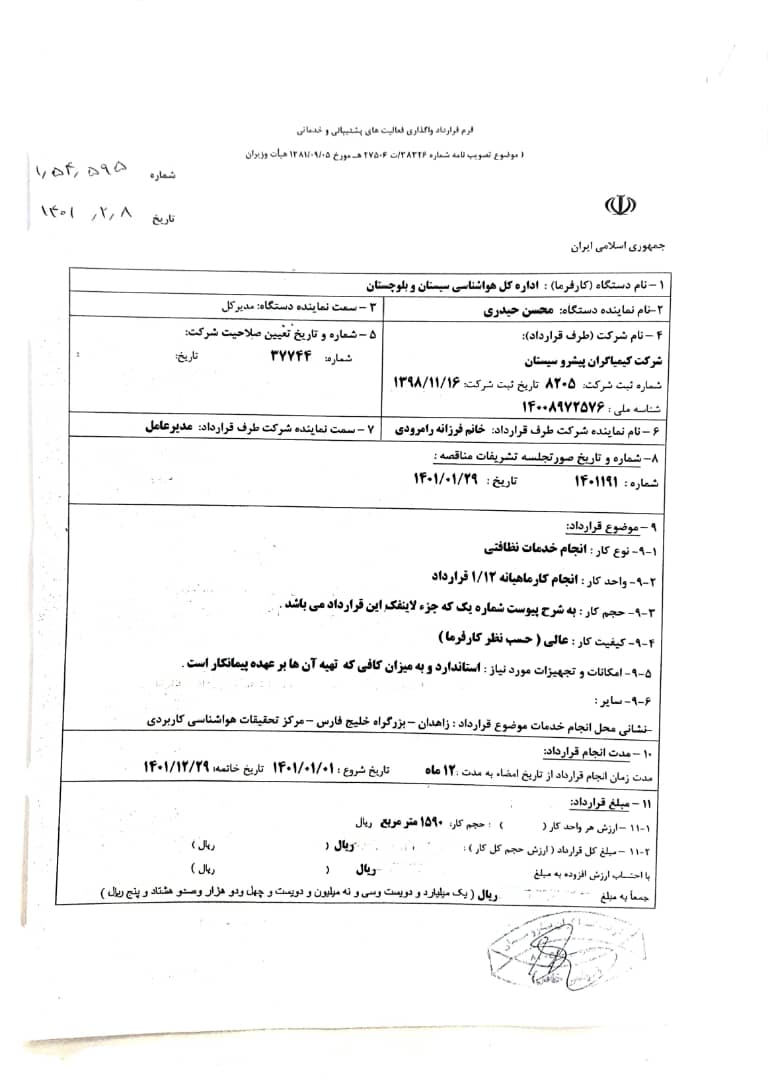 فرم قرارداد واگذاری فعالیت های پشتیبانی و خدماتی
( موضوع تصویب نامه شماره ۳۸۳۲۶/ت ۲۷۵۰۶ هـ مورخ ۱۳۸۱/۰۹/۰۵ هیأت وزیران
شماره ۱٫۵۴٫۵۹۵
تاریخ ۱۴۰۱٫۲٫۸
جمهوری اسلامی ایران
۱- نام دستگاه (کارفرما) : اداره کل هواشناسی سیستان و بلوچستان
۲-نام نماینده دستگاه: محسن حیدری
۳- سمت نماینده دستگاه: مدیرکل
۴- نام شرکت (طرف قرارداد):
شرکت کیمیاگران پیشرو سیستان
شماره ثبت شرکت: ۸۲۰۵ تاریخ ثبت شرکت: ۱۳۹۸/۱۱/۱۶
شناسه ملی : ۱۴۰۰۸۹۷۲۵۷۶
۵- شماره و تاریخ تعیین صلاحیت شرکت:
شماره: ۳۷۷۴۴ تاریخ: :
۶- نام نماینده شرکت طرف قرارداد: خانم فرزانه رامرودی
۷- سمت نماینده شرکت طرف قرارداد: مدیرعامل
۸- شماره و تاریخ صورتجلسه تشریفات مناقصه :
شماره : ۱۴۰۱۱۹۱ تاریخ : ۱۴۰۱/۰۱/۲۹
۹- موضوع قرارداد:
۹-۱- نوع کار : انجام خدمات نظافتی
۹-۲- واحد کار : انجام کارماهیانه ۱/۱۲ قرارداد
۹-۳- حجم کار : به شرح پیوست شماره یک که جزء لاینفک این قرارداد می باشد .
۹-۴- کیفیت کار : عالی ( حسب نظر کارفرما )
۹-۵- امکانات و تجهیزات مورد نیاز : استاندارد و به میزان کافی که تهیه آن ها بر عهده پیمانکار است .
۹-۶- سایر :
-نشانی محل انجام خدمات موضوع قرارداد : زاهدان – بزرگراه خلیج فارس – مرکز تحقیقات هواشناسی کاربردی
۱۰- مدت انجام قرارداد:
مدت زمان انجام قرارداد از تاریخ امضاء به مدت : ۱۲ ماه تاریخ شروع : ۱۴۰۱/۰۱/۰۱ تاریخ خاتمه: ۱۴۰۱/۱۲/۲۹
۱۱- مبلغ قرارداد:
۱۱-۱- ارزش هر واحد کار ( ) : حجم کار: ۱۵۹۰ متر مربع ریال
۱۱-۲- مبلغ کل قرارداد ( ارزش حجم کل کار ) : ریال ( ریال )
با احتساب ارزش افزوده به مبلغ ریال ( ریال )
جمعاً به مبلغ ریال ( یک میلیارد و دویست وسی و نه میلیون و دویست و چهل ودو هزار وصدو هشتاد و پنج ریال )